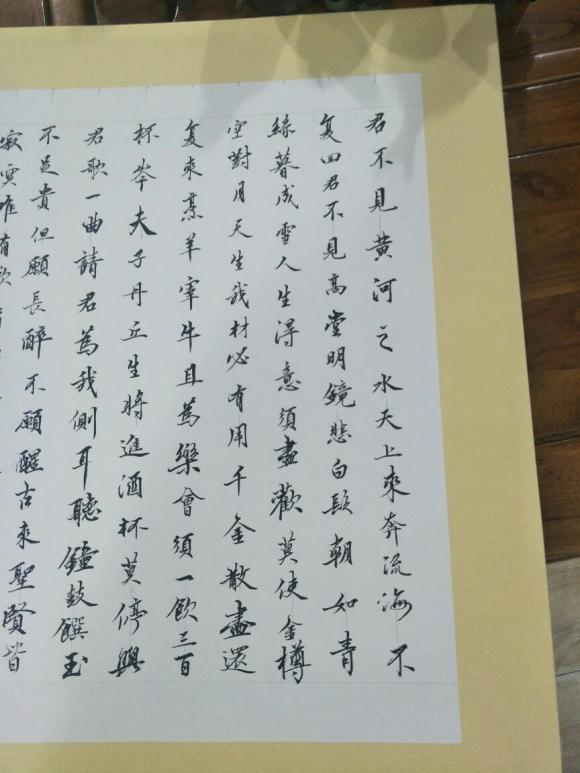 君不見黃河之水天上來奔流海不
复回君不見高堂明鏡悲白髮朝如青
絲暮成雪人生得意須盡歡莫使金樽
空對月天生我材必有用千金散盡還
复來烹羊宰牛且為樂會須一飲三百
杯岑夫子丹丘生將進酒杯莫停與
君歌一曲請君為我側耳聽鐘鼓饌玉
不足貴但願長醉不願醒古來聖賢皆
寂寞唯有飲